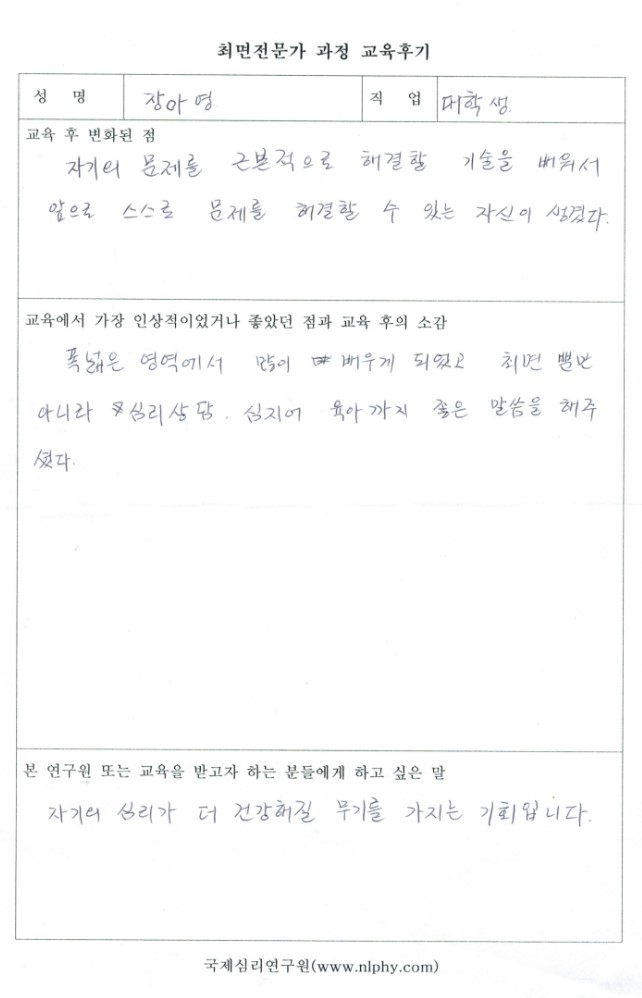 최면전문가 과정 교육후기
성 명 장아영 직 업 대학생.
교육 후 변화된 점
자기의 문제를 근본적으로 해결할 기술을 배워서
앞으로 스스로 문제를 해결할 수 있는 자신이 생겼다.
교육에서 가장 인상적이었거나 좋았던 점과 교육 후의 소감
폭넓은 영역에서 많이 배우게 되었고 최면 뿐만
아니라 심리상담. 심지어 육아까지 좋은 말씀을 해주
셨다.
본 연구원 또는 교육을 받고자 하는 분들에게 하고 싶은 말
자기의 심리가 더 건강해질 무기를 가지는 기회입니다.
국제심리연구원(www.nlphy.com)